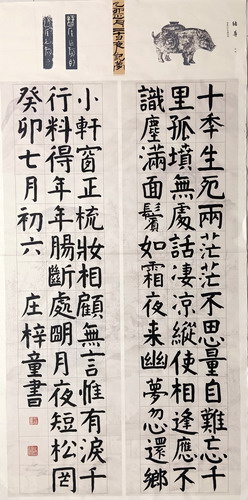 乙卯正月二十日夜記夢
十年生死兩茫茫不思量自難忘千
里孤墳無處話淒涼縱使相逢應不
識塵滿面鬢如霜夜来幽夢忽還鄉
小軒窗正梳妝相顧無言惟有淚千
行料得年年腸斷處明月夜短松岡
癸卯七月初六 庄梓童書